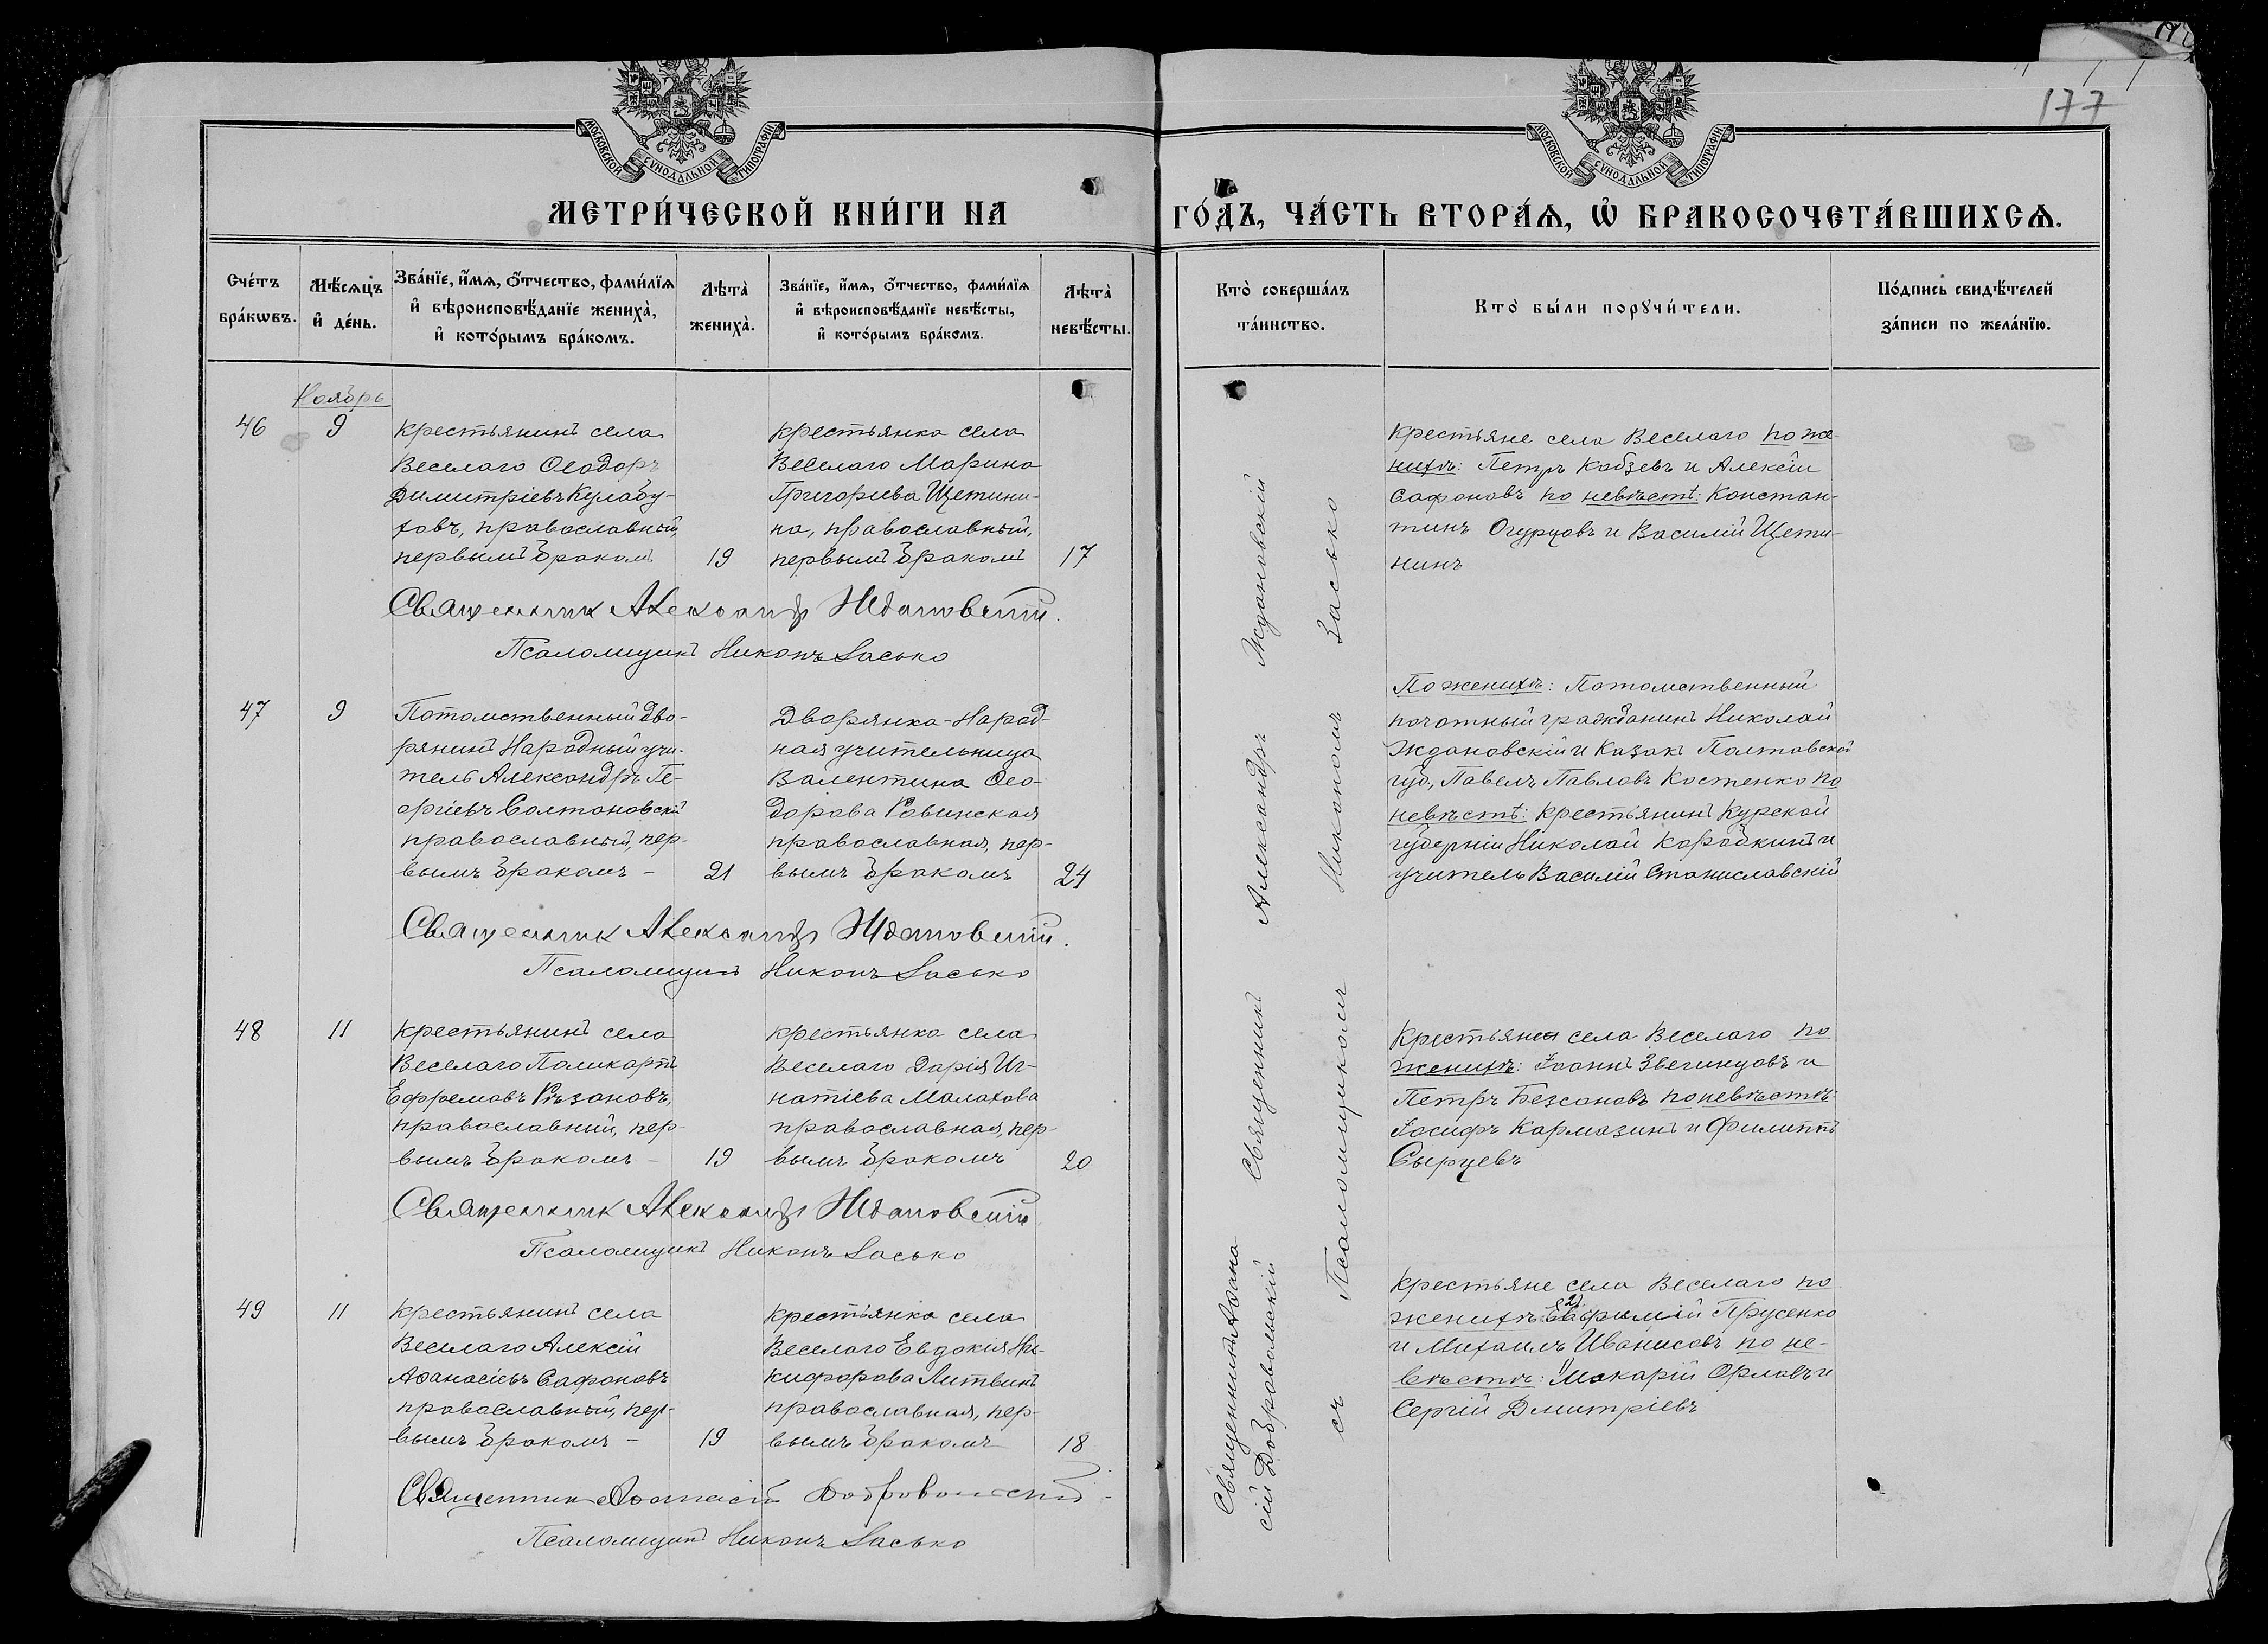 177
МОСКОВСКОЙ СѴНОДАЛЬНОЙ ТИПОГРАФІИ
МОСКОВСКОЙ СѴНОДАЛЬНОЙ ТИПОГРАФІИ
МЕТРИ́ЧЕСКОЙ КНИ́ГИ НА ГО́ДЪ, ЧА́СТЬ ВТОРА́Ѧ, Ѽ БРАКОСОЧЕТА́ВШИХСѦ.
Сче́тъ бра́кѡвъ.
Мѣ́сѧцъ и҆ де́нь.
Зва́нїе, и҆́мѧ, ѻ҆́тчество, фами́лїѧ
и҆ вѣроисповѣ́данїе жениха̀,
и҆ кото́рымъ бра́комъ.
Лѣта̀ жениха̀.
Зва́нїе, и҆́мѧ, ѻ҆́тчество, фами́лїѧ
и҆ вѣроисповѣ́данїе невѣ́сты,
и҆ кото́рымъ бра́комъ.
Лѣта̀ невѣ́сты.
Кто̀ соверша́лъ та́инство.
Кто̀ бы́ли порꙋчи́тели.
По́дпись свидѣ́телей за́писи по жела́нїю.
Ноябрь
46
9
Крестьянинъ села
Веселаго Ѳеодоръ
Димитріевъ Кулабу-
ховъ, православный,
первымъ бракомъ
19
Крестьянка села
Веселаго Марина
Григорьева Щетини-
на, православный,
первымъ бракомъ
17
Крестьяне села Веселаго по же-
нихѣ: Петръ Кобзевъ и Алексій
Сафоновъ по невѣстѣ: Констан-
тинъ Огурцовъ и Василій Щети-
нинъ
Священникъ Александръ Ждановскій.
Псаломщикъ Никонъ Засько
47
9
Потомственный дво-
рянинъ Народный учи-
тель Александръ Ге-
оргіевъ Солтановскій
православный, пер-
вымъ бракомъ -
21
Дворянка-Народ-
ная учительница
Валентина Ѳео-
дорова Ровинская
православная, пер-
вымъ бракомъ
24
По женихѣ: Потомственный
почотный гражданинъ Николай
Ждановскій и Казакъ Полтавской
губ, Павелъ Павловъ Костенко по
невѣстѣ: Крестьянинъ Курской
губерніи Николай Корабкинъ и
учитель Василій Станиславскій
Священникъ Александръ Ждановскій.
Псаломщикъ Никонъ Засько
48
11
Крестьянинъ села
Веселаго Поликарпъ
Ефремовъ Рѣзановъ,
православный, пер-
вымъ бракомъ -
19
Крестьянка села
Веселаго Дарія Иг-
натіева Малахова
православная, пер-
вымъ бракомъ
20
Крестьяне села Веселаго по
женихѣ: Іоаннъ Звегинцовъ и
Петръ Безсановъ по невѣстѣ:
Іосифъ Кормазинъ и Филиппъ
Сырцевъ
Священникъ Александръ Ждановскій
Псаломщикъ Никонъ Засько
49
11
Крестьянинъ села
Веселаго Алексій
Аѳанасіевъ Сафоновъ
православный, пер-
вымъ бракомъ -
19
Крестьянка села
Веселаго Евдокія Ни-
кифорова Литвинъ
православная, пер-
вымъ бракомъ
18
Крестьяне села Веселаго по
женихѣ: Евфимій Прусенко
и Михаилъ Иванисовъ по не-
вѣстѣ: Макарій Орловъ и
Сергій Дмитріевъ
Священникъ Аѳанасій Добровольскій
Псаломщикъ Никонъ Засько
Священникъ Аѳана-
сій Добровольскій
Священникъ Александръ Ждановскій
съ Псаломщикомъ Никономъ Засько